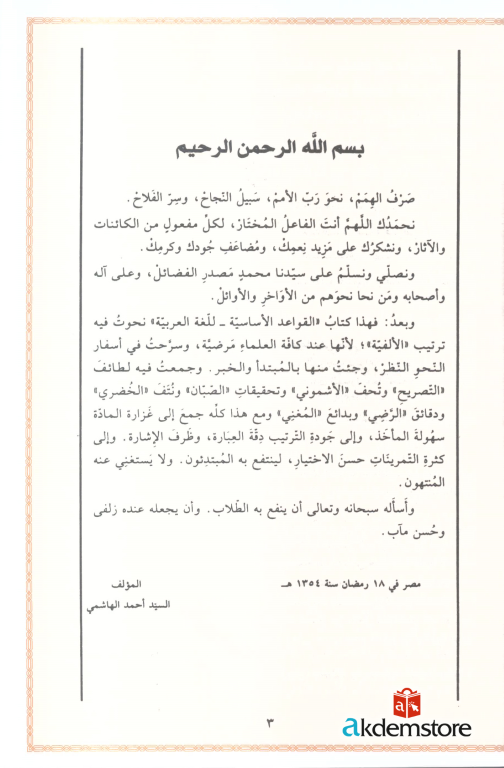 بسم اللَّه الرحمن الرحيم
صَرْفُ الهِمَمْ، نحوَ رَبّ الأممْ، سَبيلُ النّجاحْ، وسِرّ الفَلاحْ.
نحمَدُك اللّهمَّ أنتَ الفاعلُ المُختَارْ، لكلّ مفعولٍ من الكائنات
والآثارْ، ونشكرُك على مَزِيد نِعمِكْ، ومُضاعَفِ جُودك وكرمِكْ.
ونصلّي ونسلّمُ على سيّدنا محمدٍ مَصدرِ الفضائلْ، وعلى آله
وأصحابه ومَن نحا نحوَهم من الأوَاخرِ والأوائلْ.
وبعدُ: فهذا كتابُ «القواعد الأساسيّة ـ للّغة العربيّة» نحوتُ فيه
ترتيب «الألفيّة»؛ لأنّها عند كافّة العلماءِ مَرضيّة، وسرّحتُ في أسفار
النّحوِ النّظرْ، وجئتُ منها بالمُبتدأ والخبر. وجمعتُ فيه لطائفَ
«التّصريح» وتُحفَ «الأشموني» وتحقيقاتِ «الصّبّان» ونُتَفَ «الخُضري»
ودقائق «الرَّضِي» وبدائعَ «المُغنِي» ومع هذا كلّه جمعَ إلى غَزارة المادّة
سهُولةَ المأخَذ، وإلى جَودةِ التّرتيب دِقّةَ العِبَارة، وظَرفَ الإشارة. وإلى
كثرةِ التّمرينَات حسنَ الاختيار، لينتفع به المُبتدِئون. ولا يَستغنِي عنه
المُنتهون.
وأسأله سبحانه وتعالى أن ينفع به الطّلاب. وأن يجعله عنده زلفى
وحُسن مآب.
مصر في ١٨ رمضان سنة ١٣٥٤ هـ
المؤلف
السيّد أحمد الهاشمي
٣
akdemstore